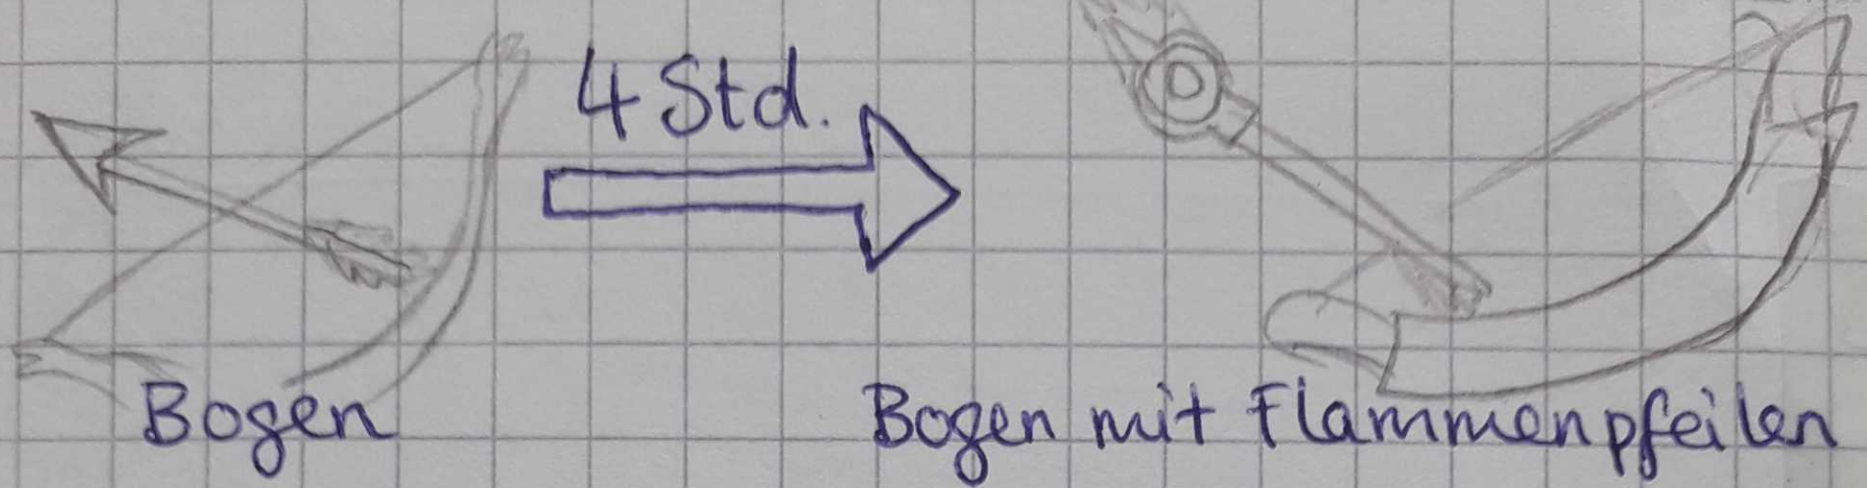 4 Std.
Bogen
Bogen mit Flammenpfeilen